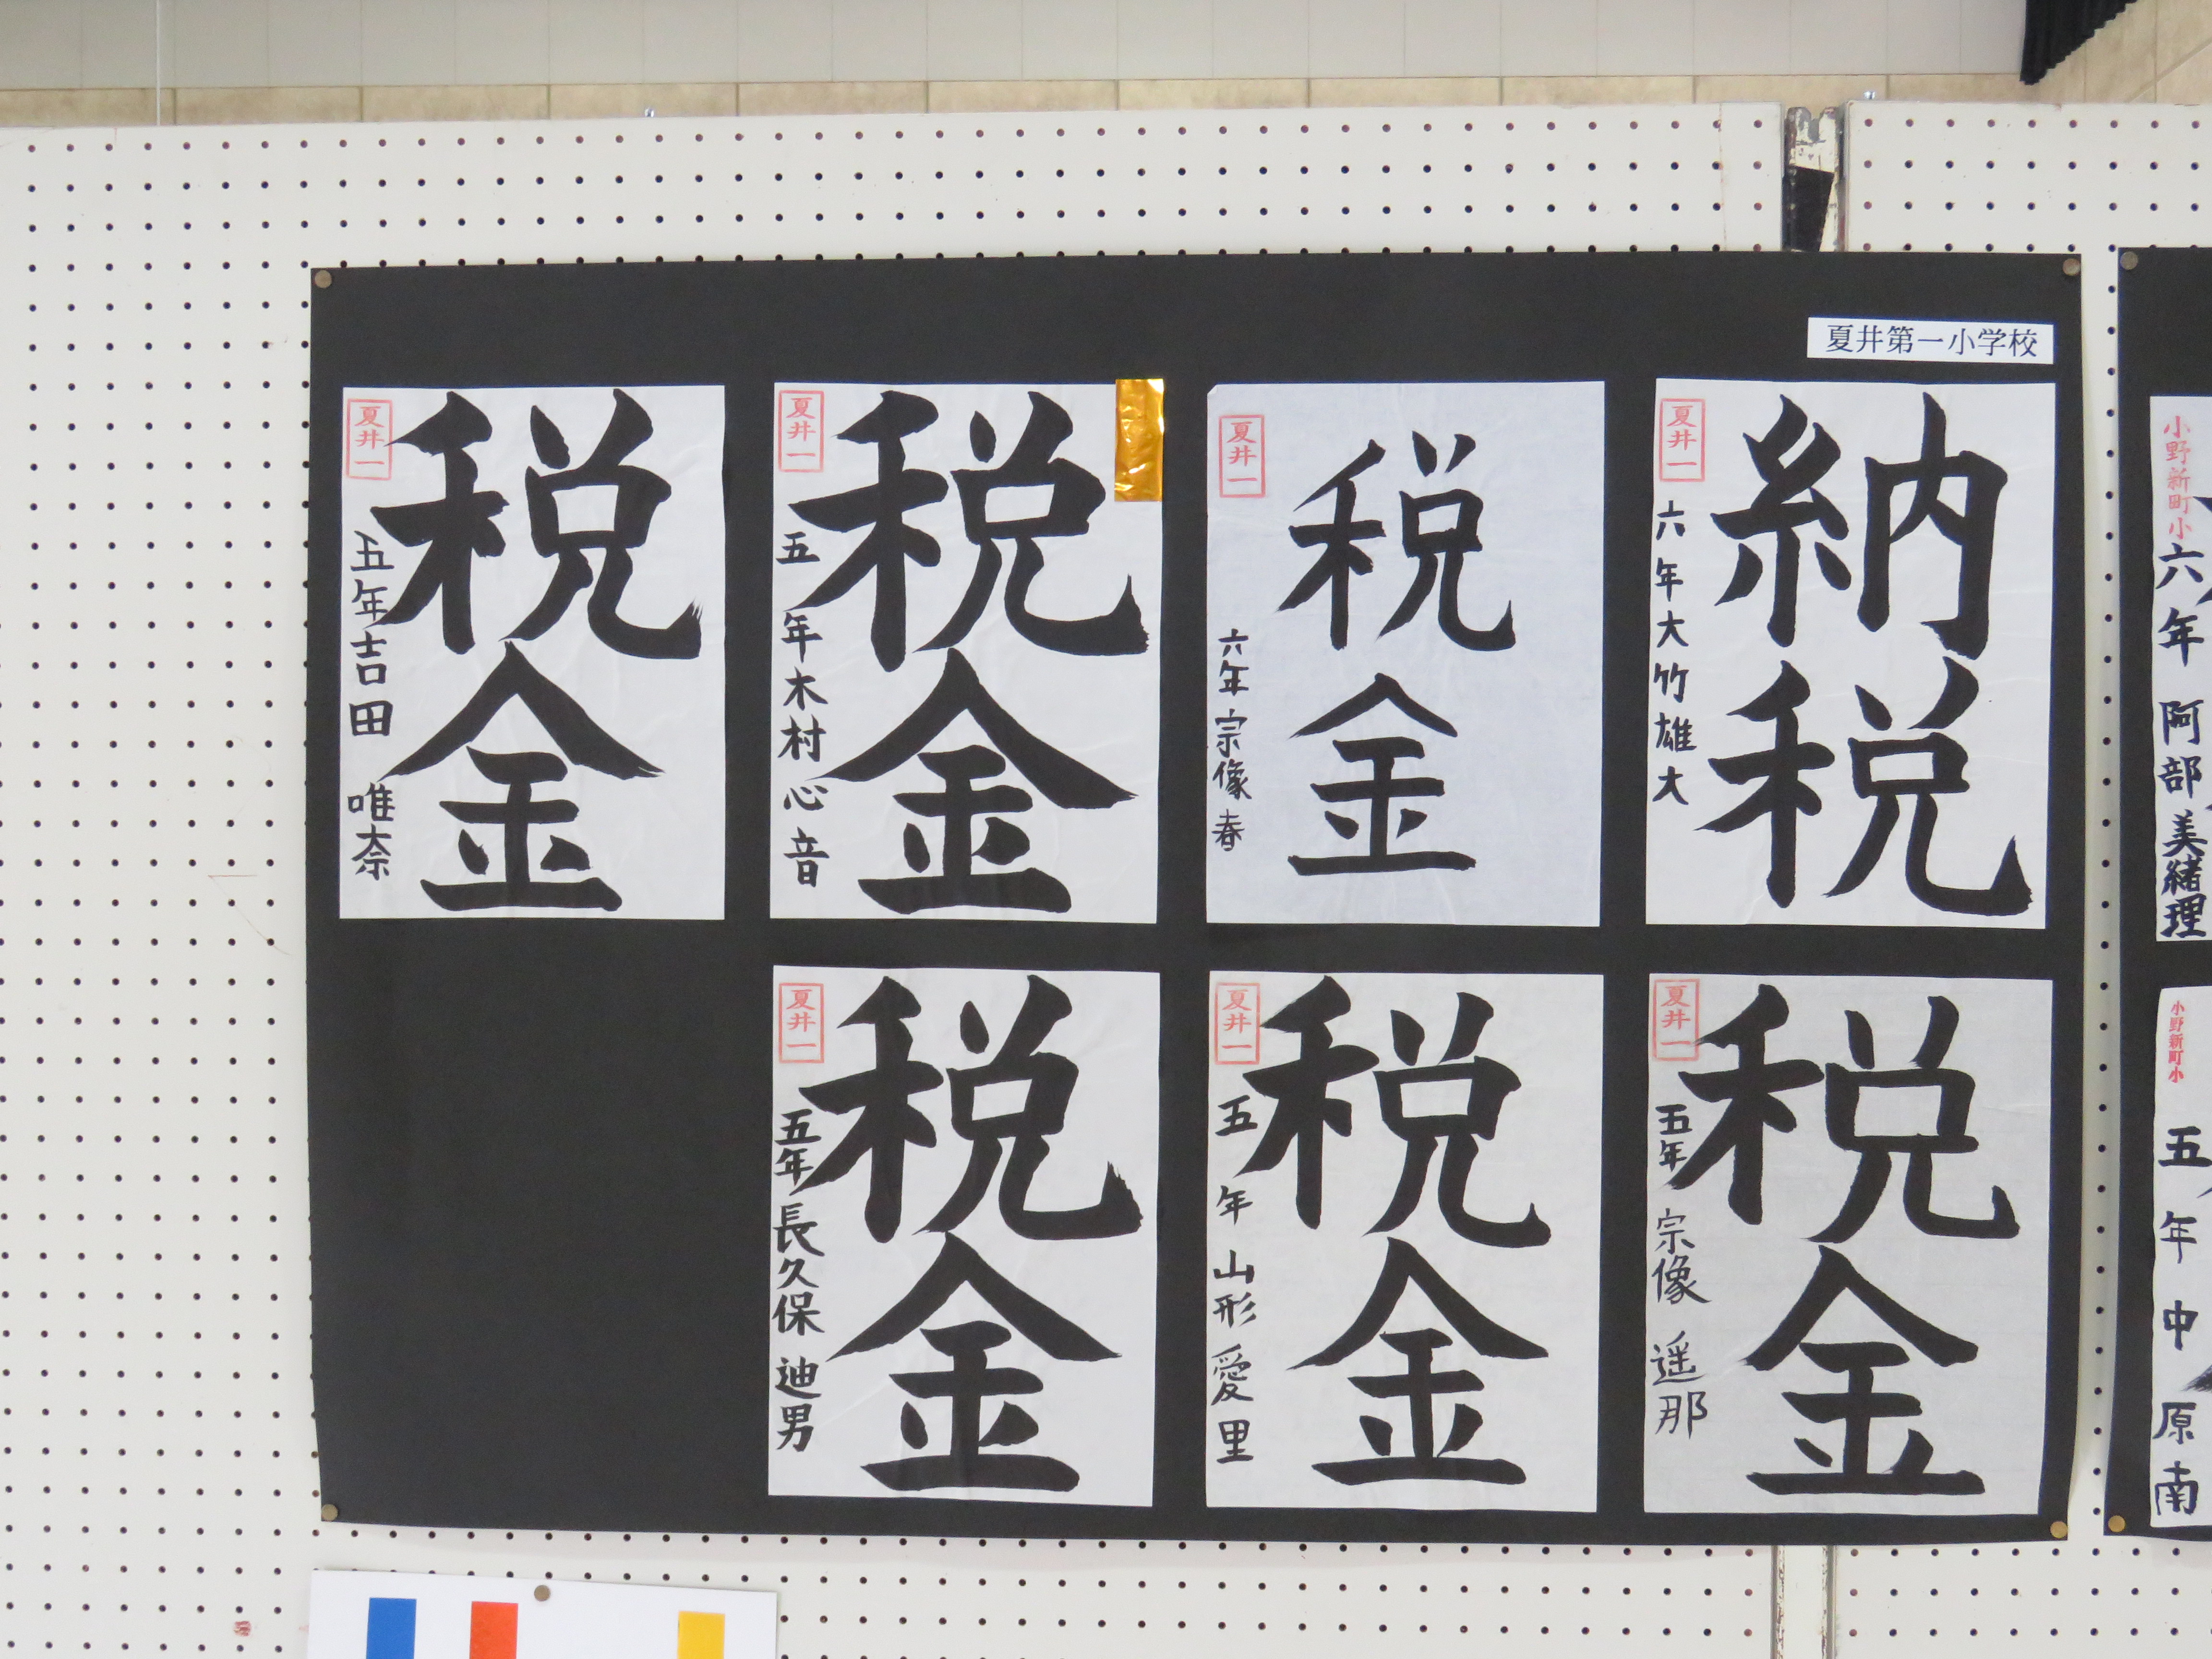 夏井第一小学校
納税
夏井一
六年大竹雄大
税金
夏井一
六年宗像春
税金
夏井一
五年木村心音
税金
夏井一
五年吉田唯奈
税金
夏井一
五年宗像遥那
税金
夏井一
五年山形愛里
税金
夏井一
五年長久保迪男
小野新町小
六年阿部美緒理
小野新町小
五年中原南